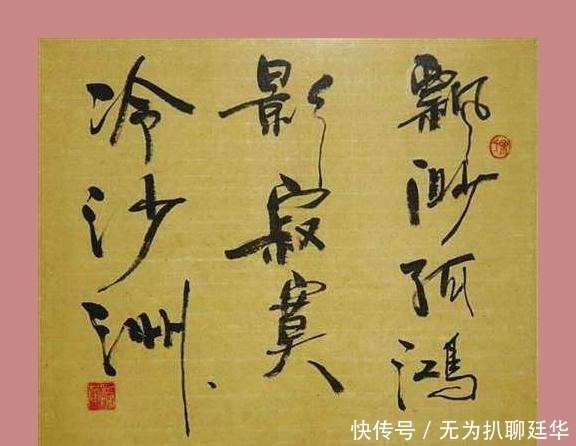 飘渺孤鸿
影寂寞
冷沙洲
快传号 / 无为扒聊廷华